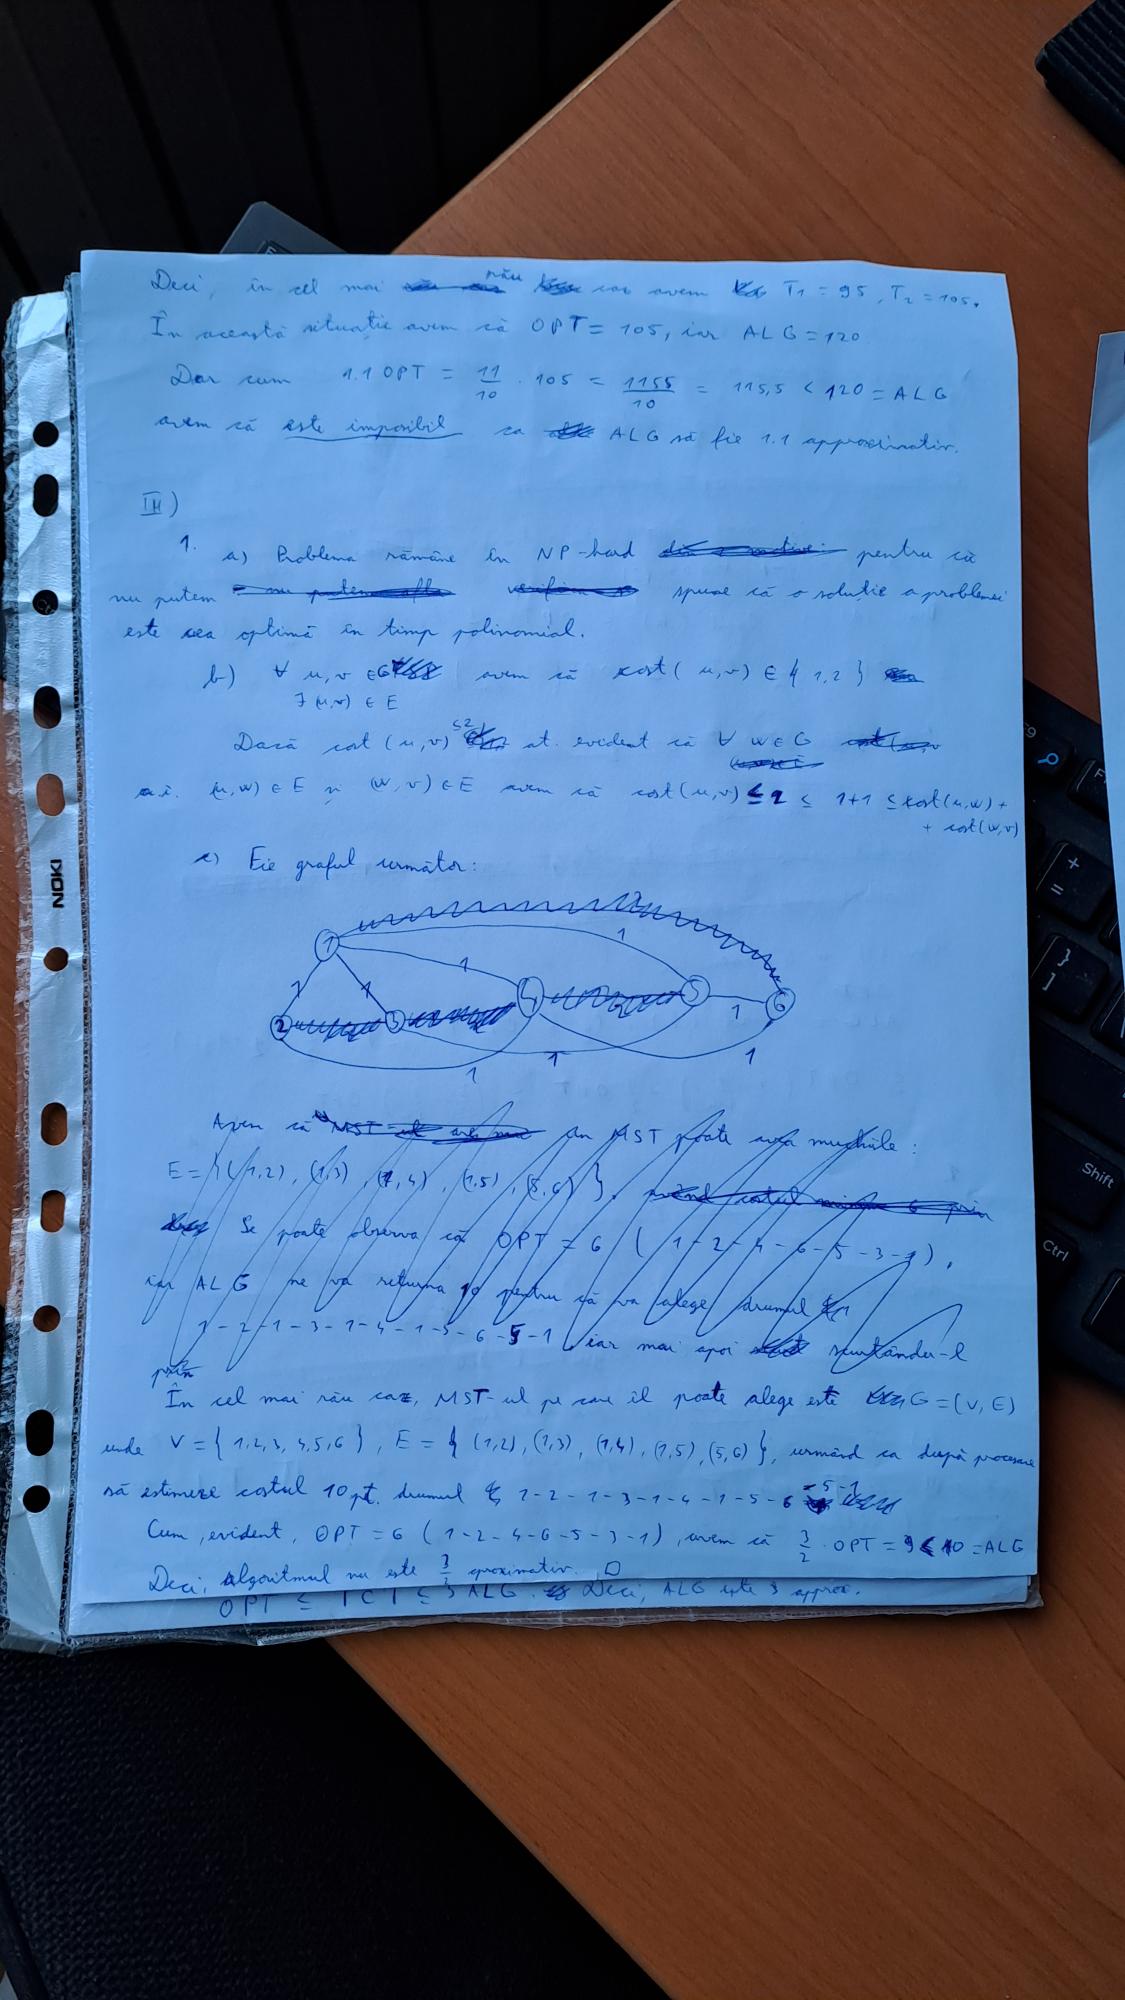 Deci, în cel mai rău caz avem T1 = 95, T2 = 105.
În această situație avem că OPT = 105, iar ALG = 120
Dar cum 1.1 OPT = 11/10 · 105 = 1155/10 = 115,5 < 120 = ALG
avem că este imposibil ca ALG să fie 1.1 approximativ.
III)
1. a) Problema rămâne în NP-hard pentru că
nu putem spune că o soluție a problemei
este cea optimă în timp polinomial.
b) ∀ u, v ∈ G avem că cost(u, v) ∈ {1, 2}
∃ (u,v) ∈ E
Dacă cost (u, v) ≤ 2 at. evident că ∀ w ∈ G
a.î. (u, w) ∈ E și (w, v) ∈ E avem că cost(u, v) ≤ 2 ≤ 1+1 ≤ cost(u, w) +
+ cost(w, v)
c) Fie graful următor:
1
1
1
1
1
4
5
6
1
2
3
1
1
1
Avem că un MST poate avea muchiile:
E = {(1,2), (1,3), (1,4), (1,5), (5,6)}
Se poate observa că OPT = 6 (1-2-4-6-5-3-1),
iar ALG ne va returna 10 pentru că va alege drumul
1-2-1-3-1-4-1-5-6-5-1, iar mai apoi scurtându-l
prin
În cel mai rău caz, MST-ul pe care îl poate alege este G = (V, E)
unde V = {1, 2, 3, 4, 5, 6}, E = {(1,2), (1,3), (1,4), (1,5), (5,6)}, urmând ca după procesare
să estimeze costul 10 pt. drumul 1-2-1-3-1-4-1-5-6-5-1
Cum, evident, OPT = 6 (1-2-4-6-5-3-1), avem că 3/2 · OPT = 9 < 10 = ALG
Deci, algoritmul nu este 3/2 aproximativ. □
OPT ≤ ≤ 3 ALG. Deci, ALG este 3 approx.
NOKI
F9
Shift
Ctrl